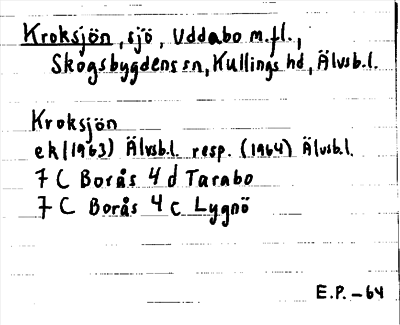 Kroksjön, sjö, Uddabo m.fl.,
Skogsbygdens sn, Kullings hd, Älvsb.l.
Kroksjön
ek (1963) Älvsb.l. resp. (1964) Älvsb.l.
7 C Borås 4 d Tarabo
7 C Borås 4 c Lygnö
E.P. - 64